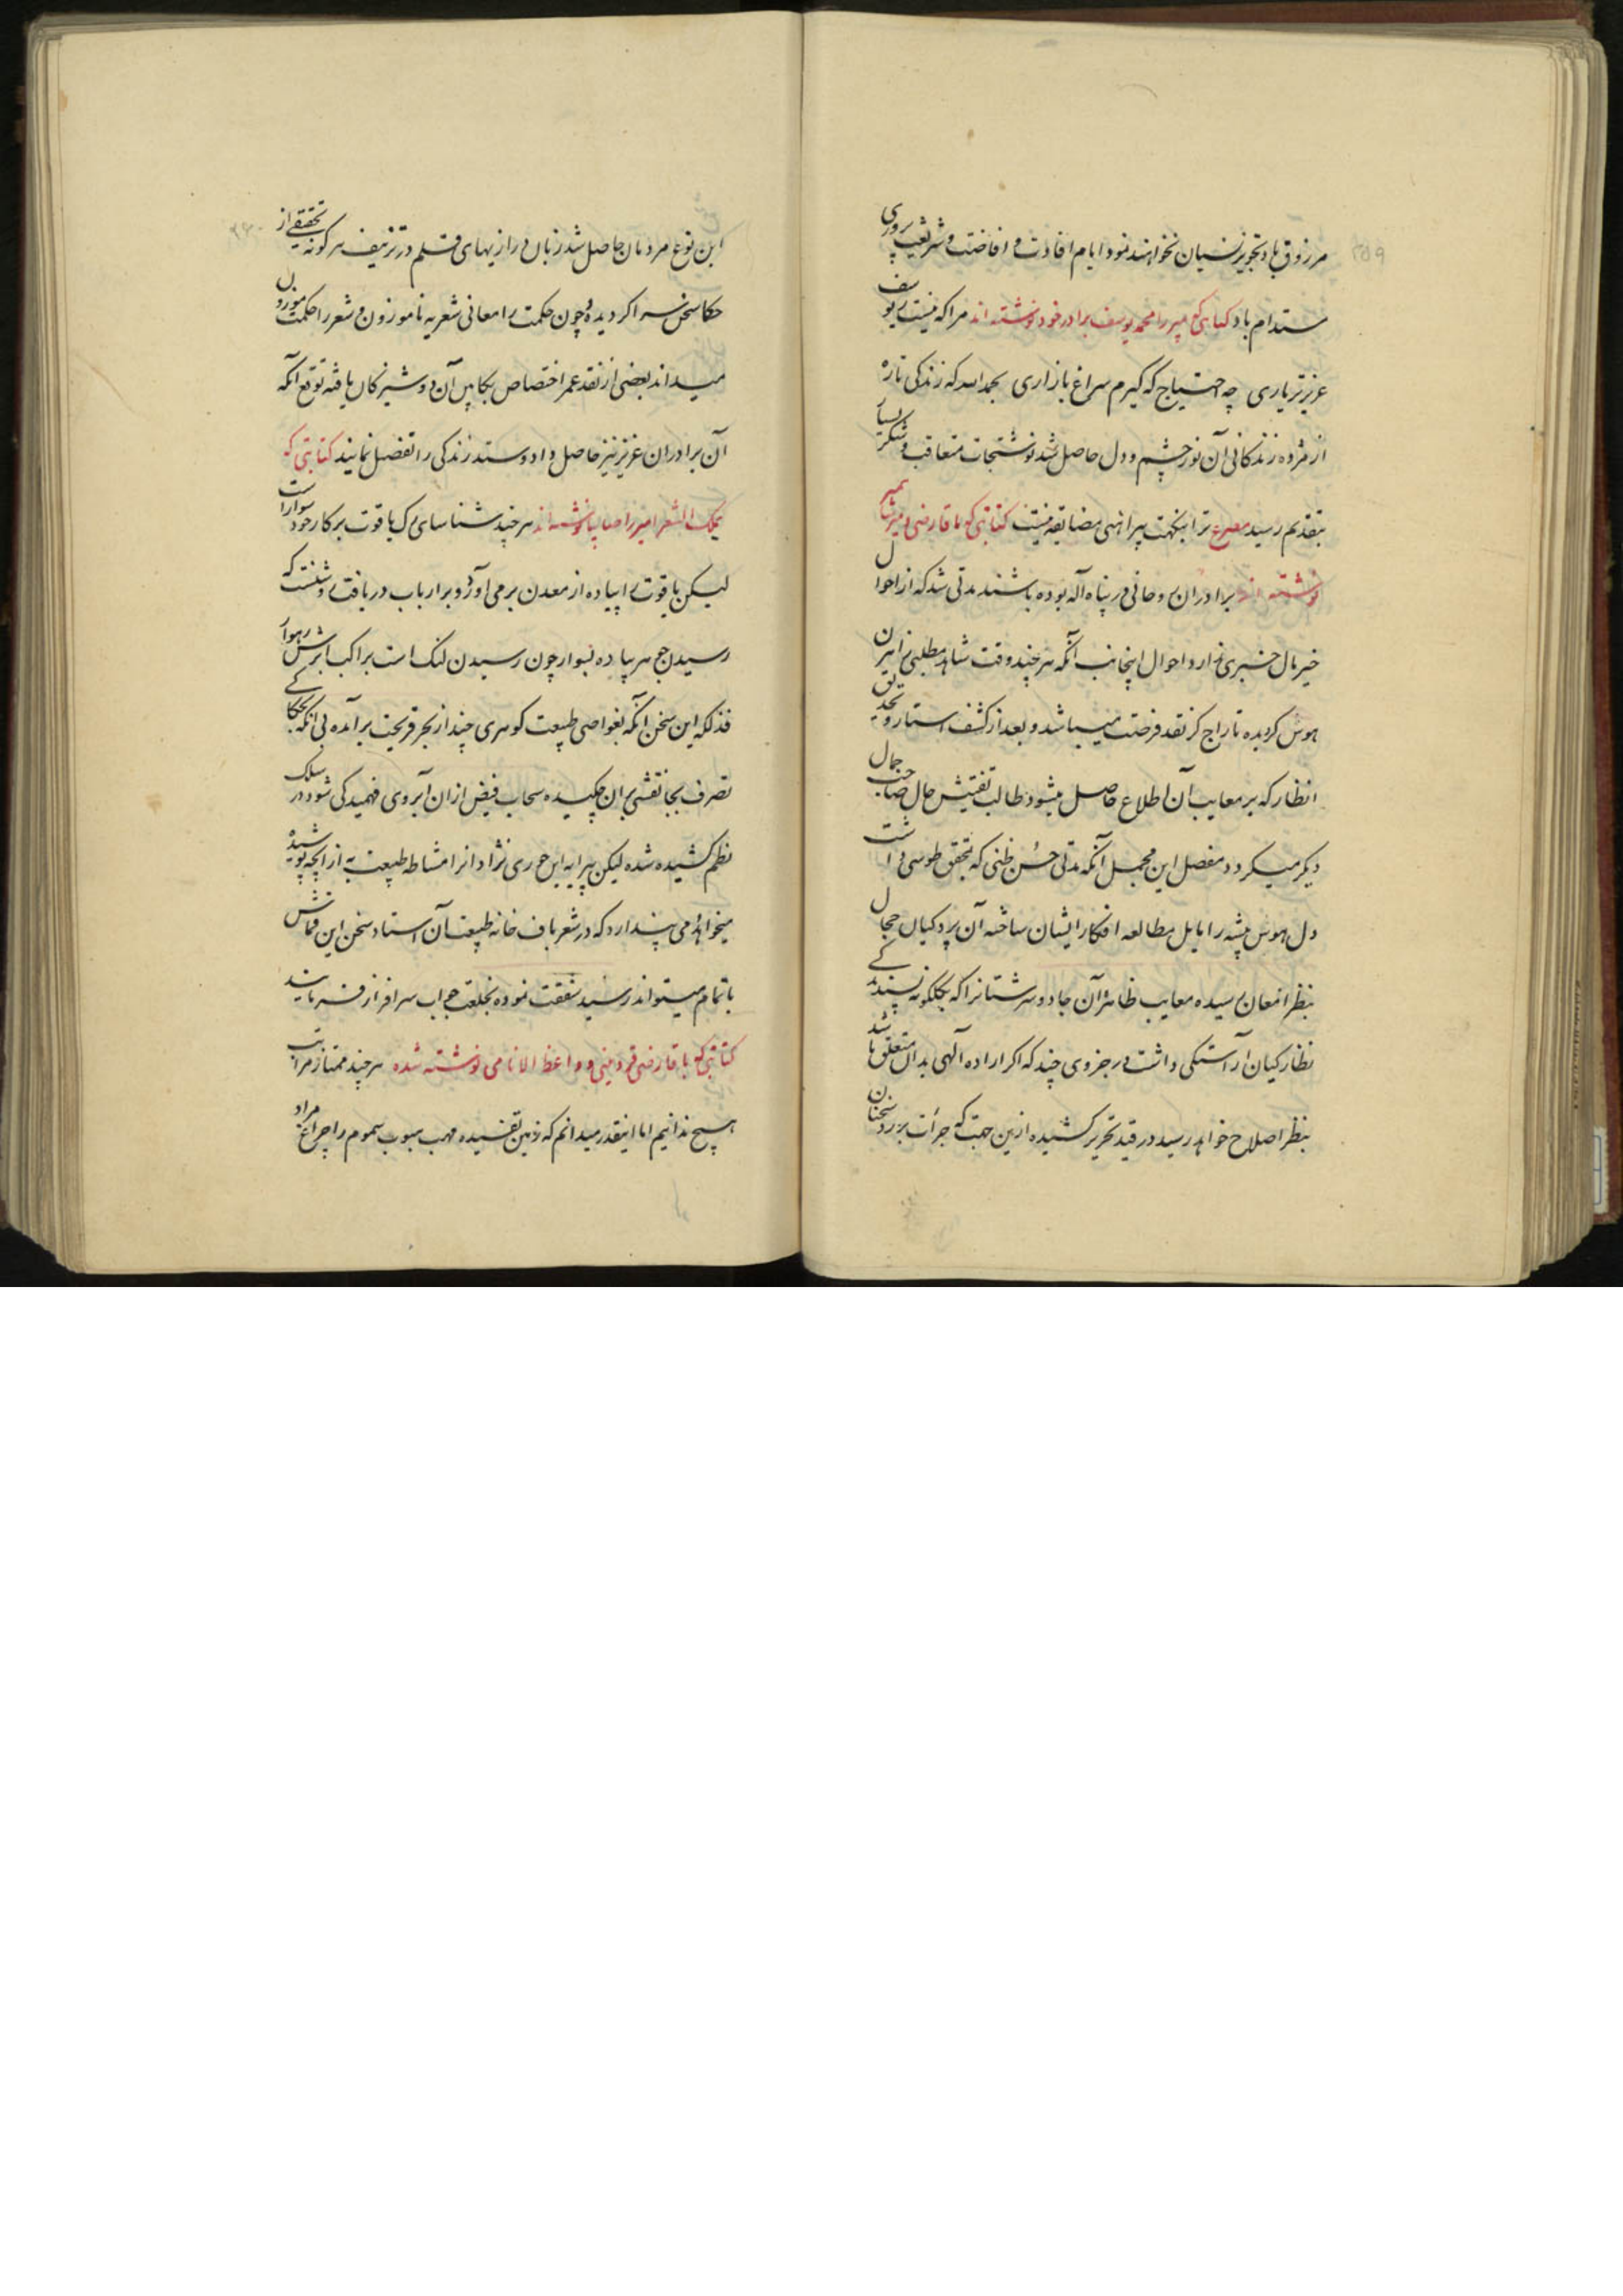 ۲۵۹
مرزوق باد تجویز نسیان نخواهند نمود ایام افادت و افاضت و شریعت پروری
مستدام باد کتابتی که میرزا محمد یوسف برادر خود نوشته اند مرا که نیست یوسف
عزیزتر یاری چه احتیاج که گیرم سراغ بازاری بحمد الله که زندگی تازه
از مژده زندگانی آن نور چشم و دل حاصل شد نوشتجات متعاقب و شکر بسیار
بتقدیم رسید مصرع ترا بنکهت پیراهنی مضایقه نیست کتابتی که باقا رضی و میرزا
نوشته اند برادران روحانی در پناه اله بوده باشند مدتی شد که از احوال
خیر مال خبری ندارد احوال اینجانب آنکه هر چند وقت شاهد مطلبی راهزن
هوش کردیده تاراج کر نقد فرصت میباشد و بعد از کشف استار و تحدیق
انظار که بر معایب آن اطلاع حاصل میشود طالب تفتیش حال صاحب جمال
دیگر میگردد مفصل این مجمل آنکه مدتی حسن ظنی که بتحقق طوسی داشت
دل هوس پیشه را مایل مطالعه افکار ایشان ساخته آن پردکیان حجال
بنظر امعان رسیده معایب ظاهر آن جادو سرشتانرا که بکلکونه پسندیدکی
نظارکیان آراستکی داشت در جزوی چند که اکر اراده الهی بدان متعلق باشد
بنظر اصلاح خواهد رسید در قید تحریر کشیده ازین جهت که جرأت بر رد سخنان
این نوع مردمان حاصل شد زبان درازیهای قلم در تزییف هر کونه تحقیقی از
حکما سخن سرا کردیده و چون حکمت را معانی شعریه ناموزون و شعر را حکمت موزون
میداند بعضی از نقد عمر اختصاص بکابین آن دوشیزکان یافته توقع آنکه
آن برادران عزیز نیز حاصل داد و ستد زندکی را تفضل نمایند کتابتی که
بملک الشعرا میرزا صایبا نوشته اند هر چند شناسای رک یاقوت بر کار خود سوار است
لیکن یاقوت را پیاده از معدن بر می آورد و بر ارباب دریافت روشنست که
رسیدن حج هر پیاده بسوار چون رسیدن لنک است براکب ابرش رهوار
فذلکه این سخن آنکه بغواصی طبیعت کوهری چند از بحر قریحت برآمده بی آنکه بحکاکی
تصرف بجا نقشی بران چکیده سحاب فیض ازان آبروی فهمیدکی شود در سلک
نظم کشیده شده لیکن پیرایه این حوری نژادانرا مشاطه طبیعت به از آنچه پوشیده
میخواهد و می پندارد که در شعرباف خانه طبیعت آن استاد سخن این قماش
باتمام میتواند رسید شفقت نموده بخلعت جواب سرافراز فرمایند
کتابتی که باقا رضی قزوینی و واعظ الانامی نوشته شده هر چند ممتاز مراتب
هیچ ندانیم اما اینقدر میدانم که زمین تفسیده مهب هبوب سموم را چراغ مراد